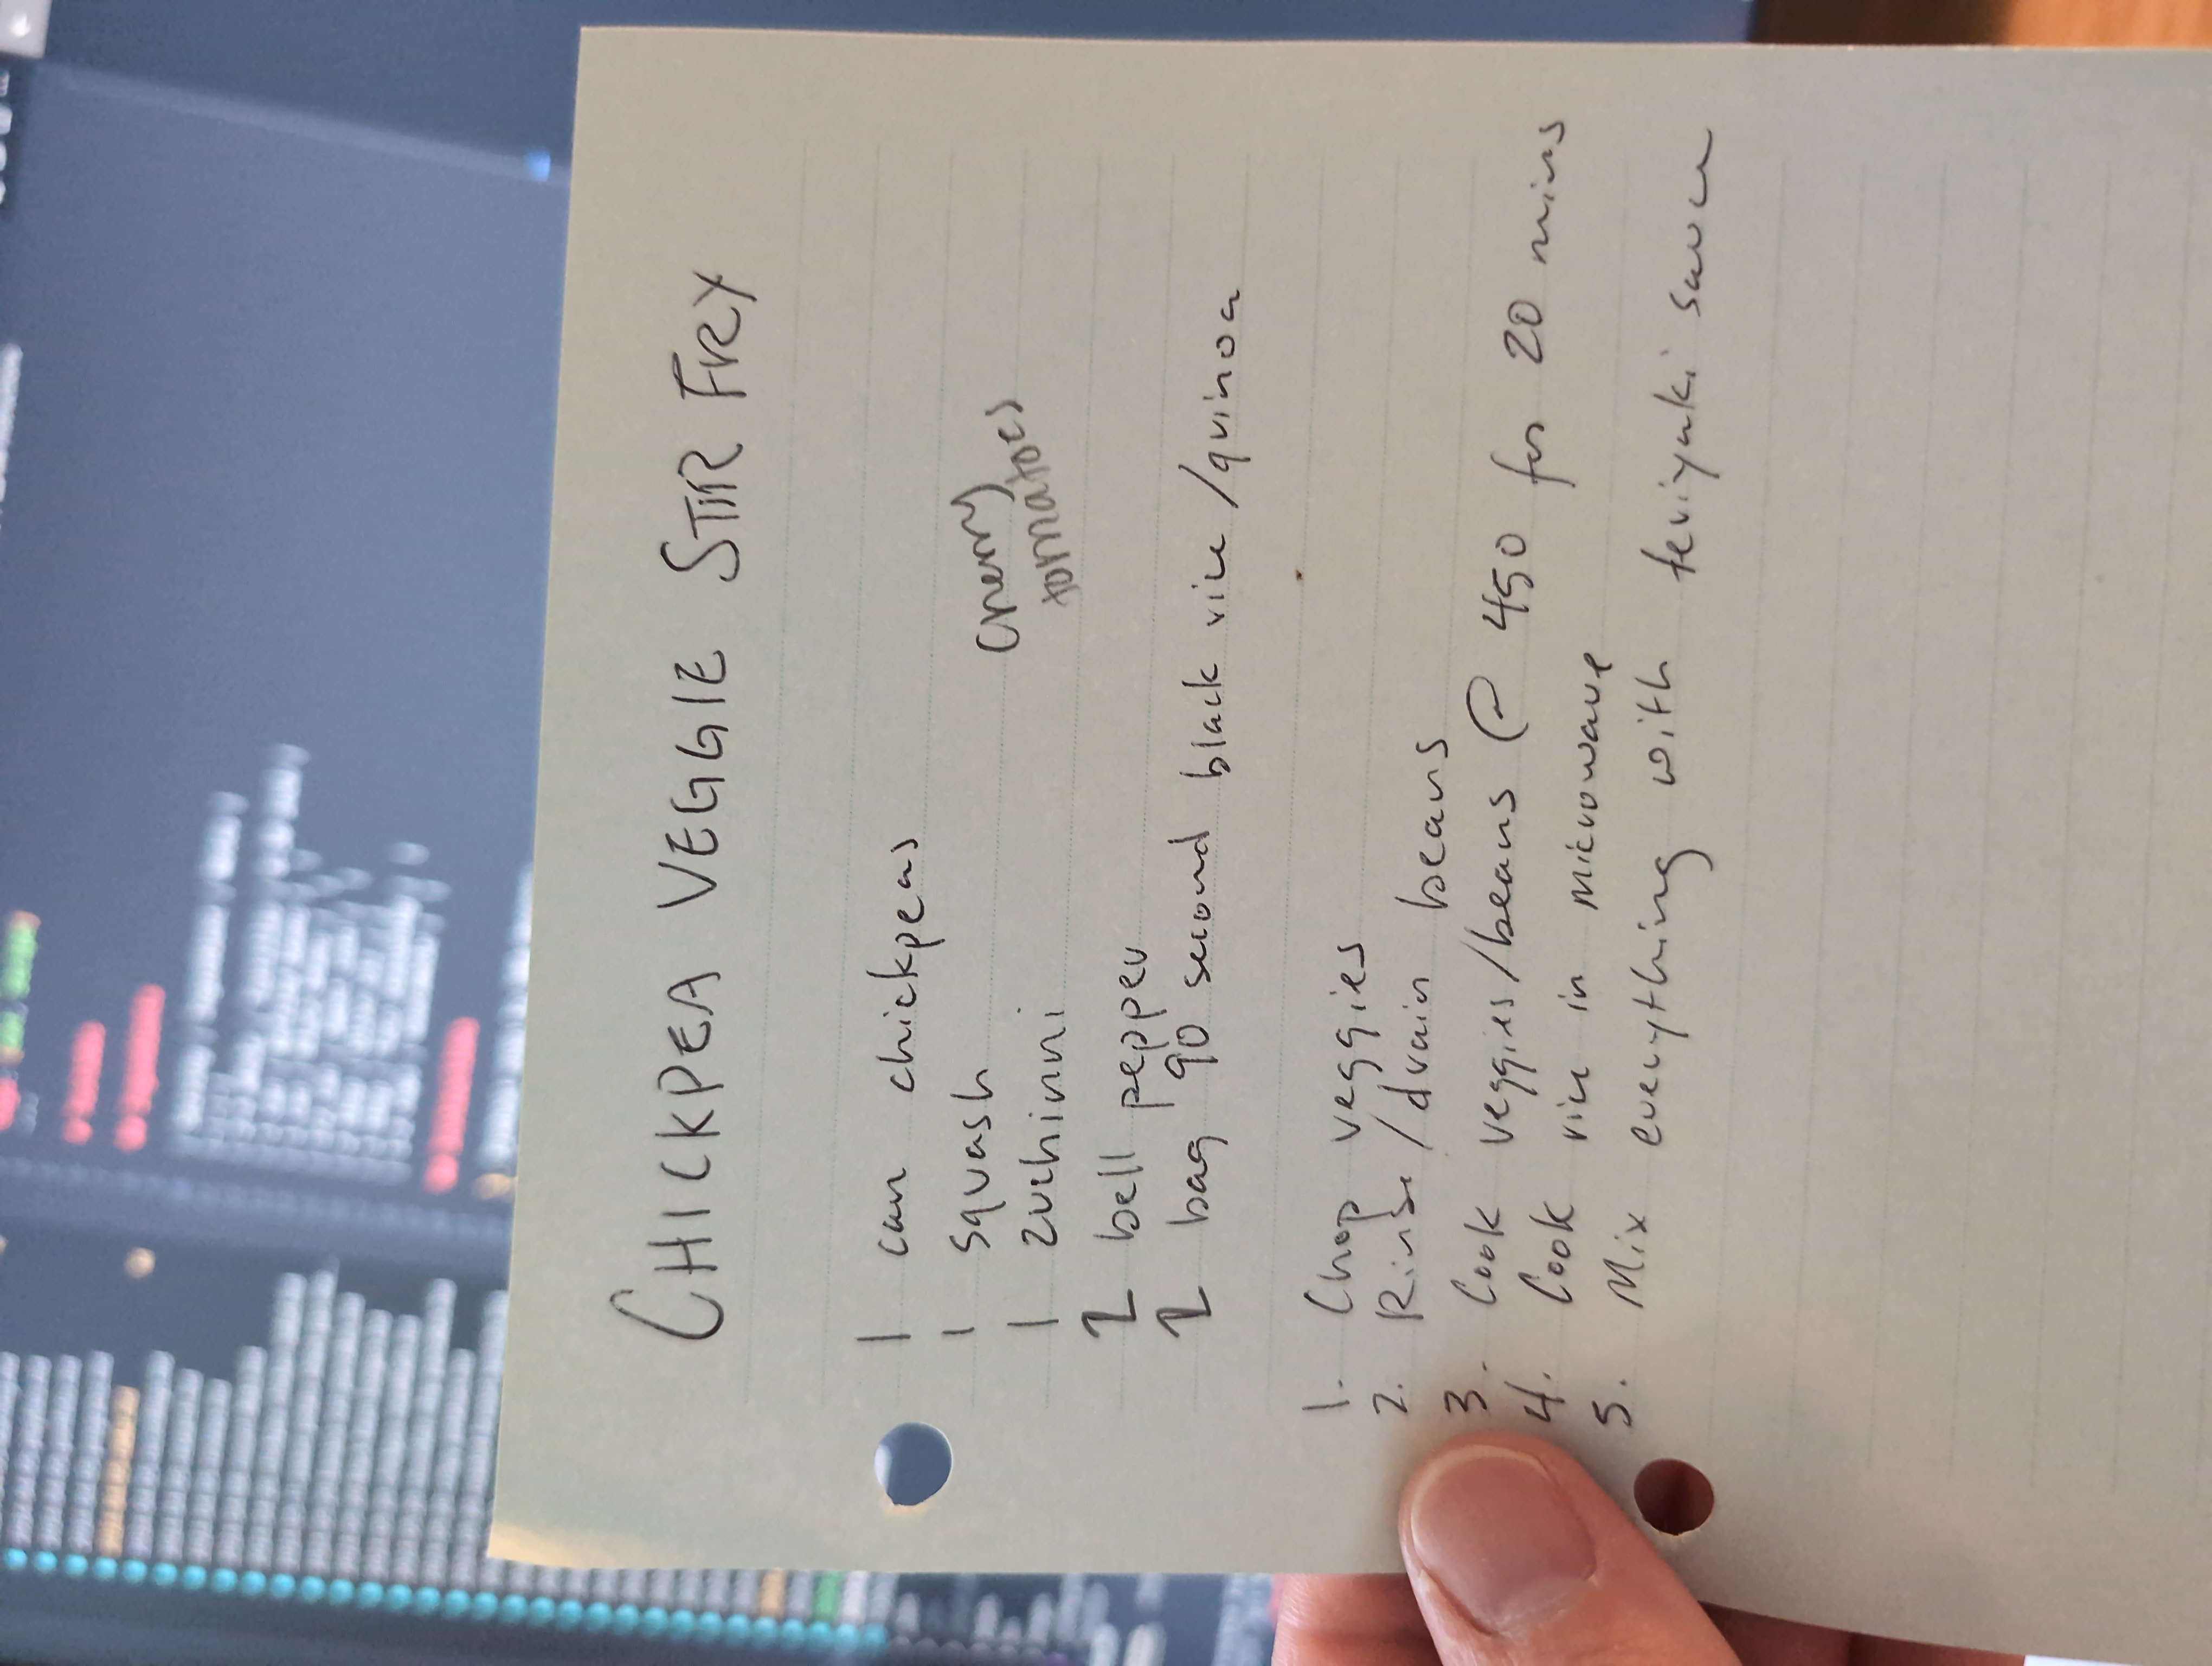 CHICKPEA VEGGIE STIR FRY
1 can chickpeas
1 squash
1 zuchinni
cherry
tomatoes
2 bell pepper
2 bag 90 second black rice/quinoa
1. Chop veggies
2. Rinse/drain beans
3. Cook veggies/beans @ 450 for 20 mins
4. Cook rice in microwave
5. Mix everything with teriyaki sauce